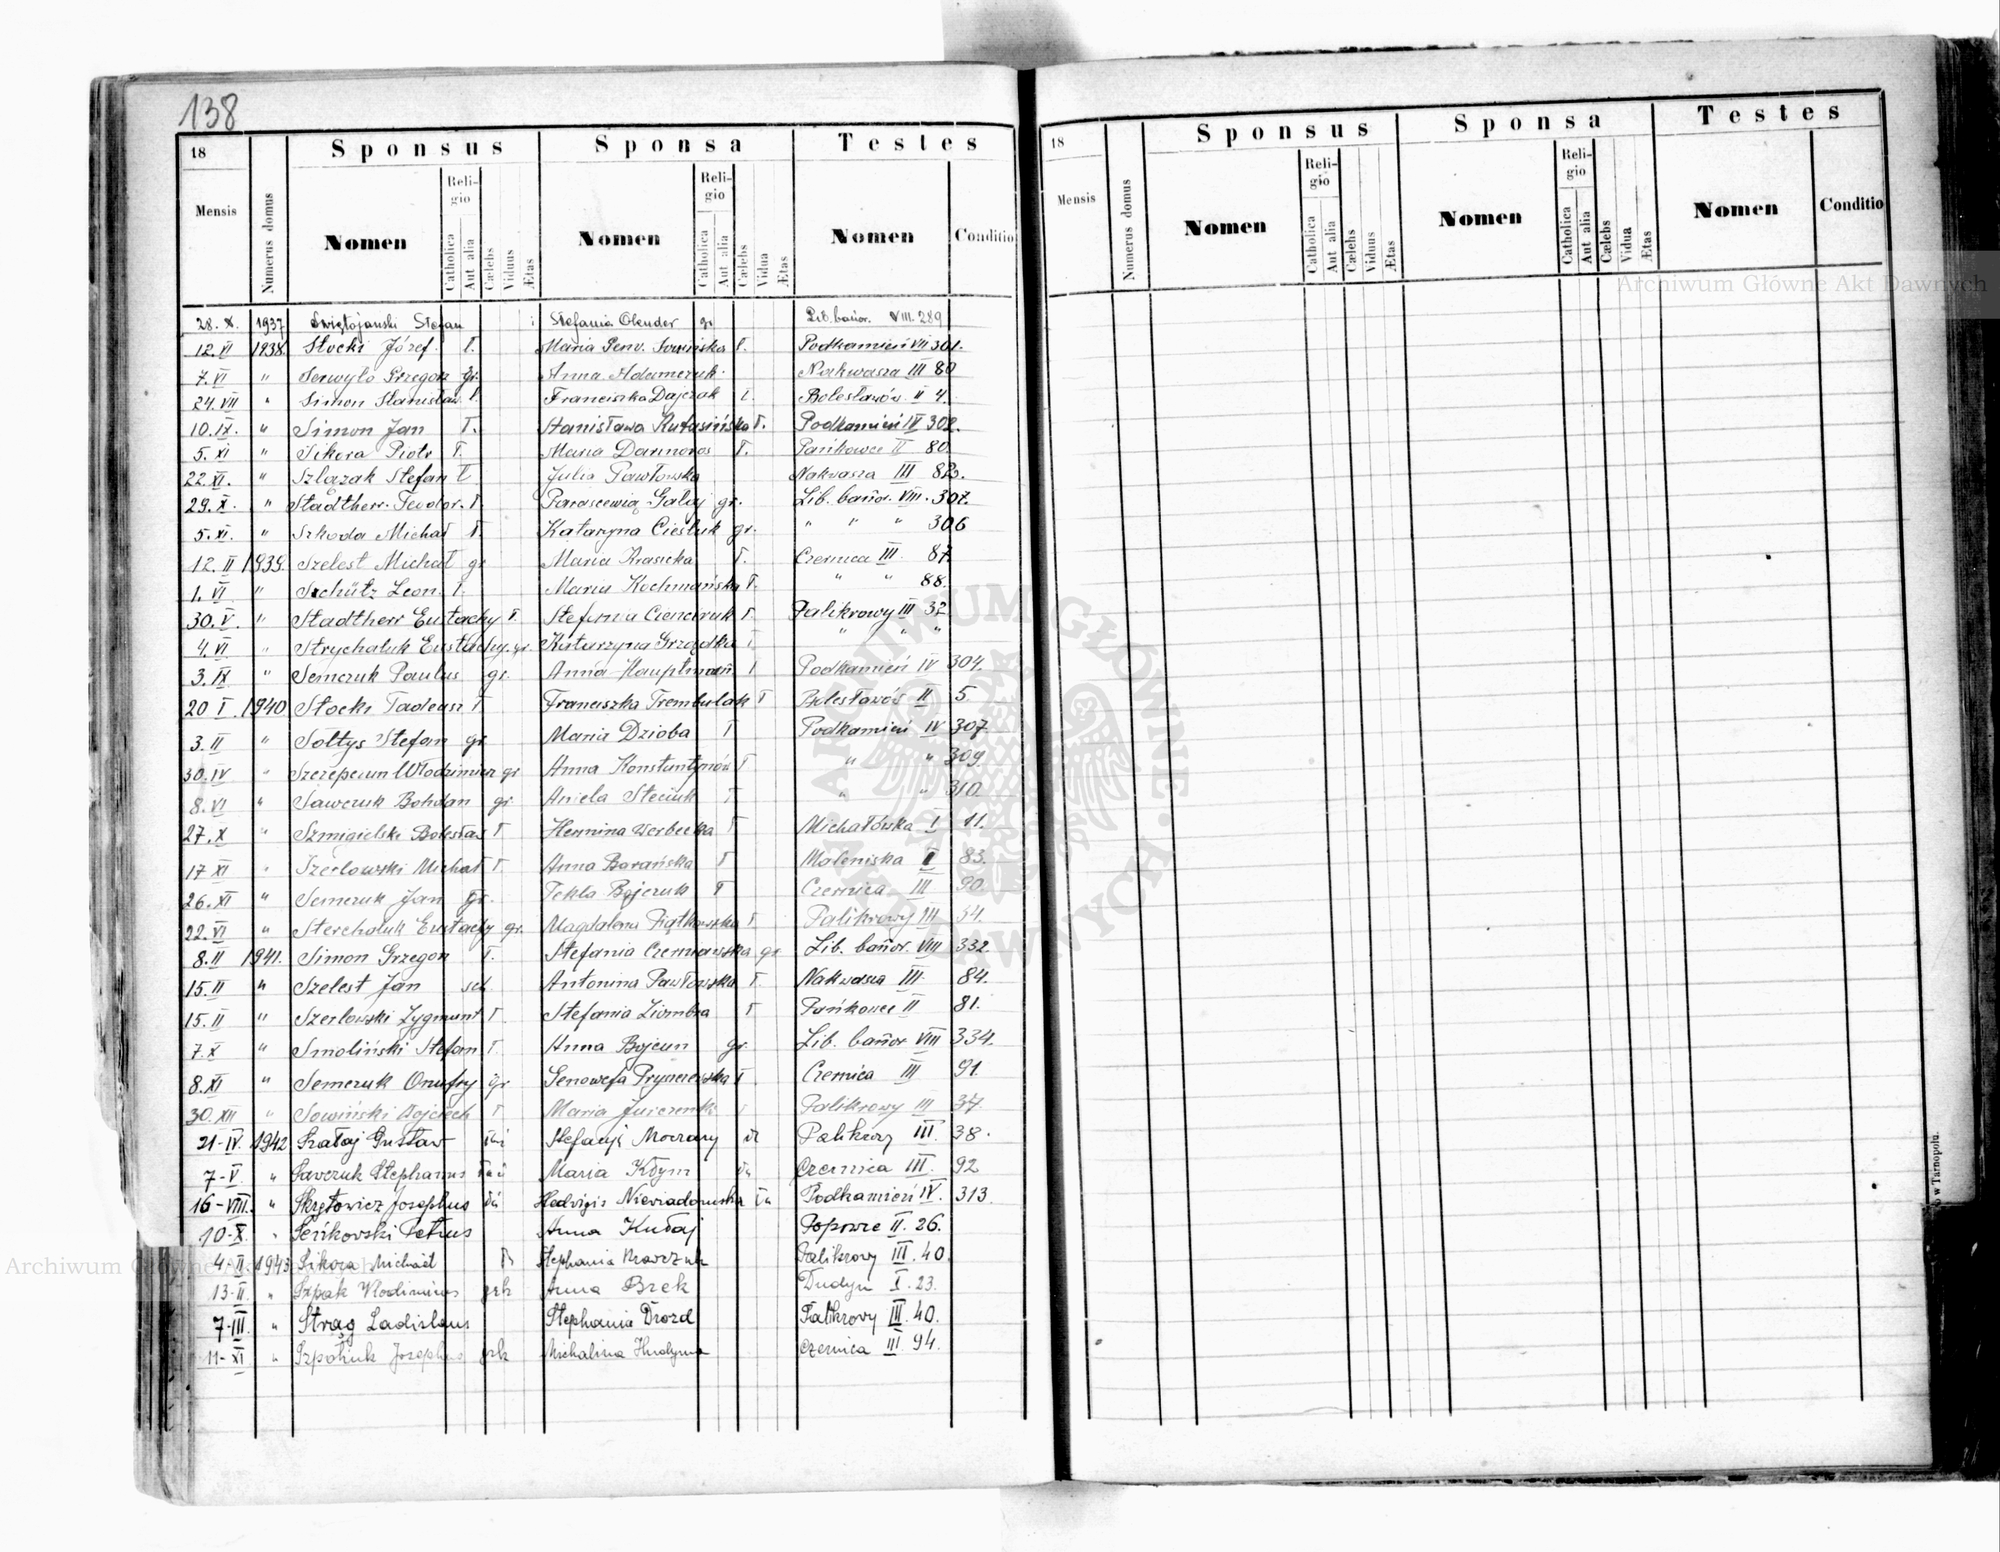 138
18 Sponsus Sponsa Testes
Mensis Numerus domus Nomen Religio Catholica Aut alia Cælebs Viduus Ætas Nomen Religio Catholica Aut alia Cælebs Vidua Ætas Nomen Conditio
28. X. 1937 Świętojanski Stefan Stefania Olender gr Lib. bańor. VIII. 289
12. VI 1938. Stocki Józef. ł. Maria Genv. Sowińska ł. Podkamień VII 301.
7. VI " Serwyło Grzegorz gr. Anna Adamczuk. Nakwasza III 80
24. VII " Simon Stanisław. ł. Franciszka Dajczak ł. Bolesławów. II 4.
10. IX. " Simon Jan ł. Stanisława Rutasińska ł. Podkamień IV 302.
5. XI " Sikora Piotr ł. Maria Darmoros ł. Pańkowce II 80.
22. XI. " Szlązak Stefan ł Julia Pawłowska Nakwasza III 82.
29. X. " Stadtherr Teodor. ł. Parascewia Gałaj gr. Lib. bańor. VIII. 307.
5. XI. " Szkoda Michał ł. Katarzyna Cieśluk gr. " " " 306
12. II 1939. Szelest Michał gr Maria Krasicka ł. Czernica III. 87.
1. VI " Schütz Leon. ł. Maria Kochmańska ł. " " 88.
30. V. " Stadtherr Eustachy ł. Stefania Ciencaruk ł. Palikrowy III 32
4. VI " Strychaluk Eustachy. gr. Katarzyna Grządka ł " " "
3. IX " Semczuk Paulus gr. Anna Hauptman ł Podkamień IV 304.
20 I. 1940 Stocki Tadeusz ł Franciszka Trembulak ł Bolesławów II 5.
3. II " Sołtys Stefan gr. Maria Dzioba ł Podkamień IV 307.
30. IV " Szczepcun Włodzimierz gr Anna Konstantynów ł " " 309.
8. VI " Sawczuk Bohdan gr. Aniela Steciuk ł " " 310.
27. X " Szmigielski Bolesław ł Hennina Werbecka ł Michałówka I 11.
17 XI " Szerłowski Michał ł. Anna Barańska ł Maleniska I 83.
26. XI " Semczuk Jan gr. Tekla Bojczuk ł Czernica III 90.
22. VI " Sterchaluk Eustachy gr. Magdalena Piątkowska ł Palikrowy III 34.
8. II 1941. Simon Grzegorz ł. Stefania Czerniawska gr Lib. bańor. VIII 332.
15. II " Szelest Jan sch. Antonina Pawłowska ł. Nakwasza III 84.
15. II " Szerłowski Zygmunt ł. Stefania Ziombra ł Pańkowce II 81.
7. X " Smoliński Stefan ł. Anna Bojcun gr. Lib. bańor VIII 334.
8. XI " Semczuk Onufry gr Genowefa Prynczewska ł Czernica III 91.
30. XII " Sowiński Wojciech ł Maria ł Palikrowy III 37.
21-IV. 1942 Szałaj Gustaw Stefanja Moczary Palikrowy III. 38.
7-V. " Savczuk Stephanus Maria Kłym Czernica III. 92
16-VIII. " Skrętowicz Josephus Hedvigis Nieviadomska Podkamień IV. 313.
10-X. " Seńkowski Petrus Anna Kułaj Popowce II. 26.
4-II. 1943 Sikora Michaël Stephania Krawczuk Palikrowy III. 40.
13-II. " Szpak Vlodimirus grk Anna Brek Dudyn I. 23.
7-III. " Strąg Ladislaus Stephania Drozd Palikrovy III. 40.
11-XI " Josephus grk Michalina Czernica III 94.
18 Sponsus Sponsa Testes
Mensis Numerus domus Nomen Religio Catholica Aut alia Cælebs Viduus Ætas Nomen Religio Catholica Aut alia Cælebs Vidua Ætas Nomen Conditio
Archiwum Główne Akt Dawnych
ARCHIWUM GŁÓWNE AKT DAWNYCH
Archiwum Główne Akt Dawnych
w Tarnopolu.